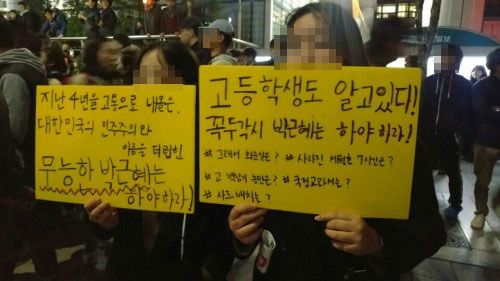 지난 4년을 고통으로 내몰은,
대한민국의 민주주의와
이름을 더럽힌
무능한 박근혜는
하야하라!
고등학생도 알고있다!
꼭두각시 박근혜는 하야하라!
# 그래서 최순실은? # 사라진 세월호 7시간은?
# 고 백남기 농민은? # 국정교과서는?
# 사드배치는?